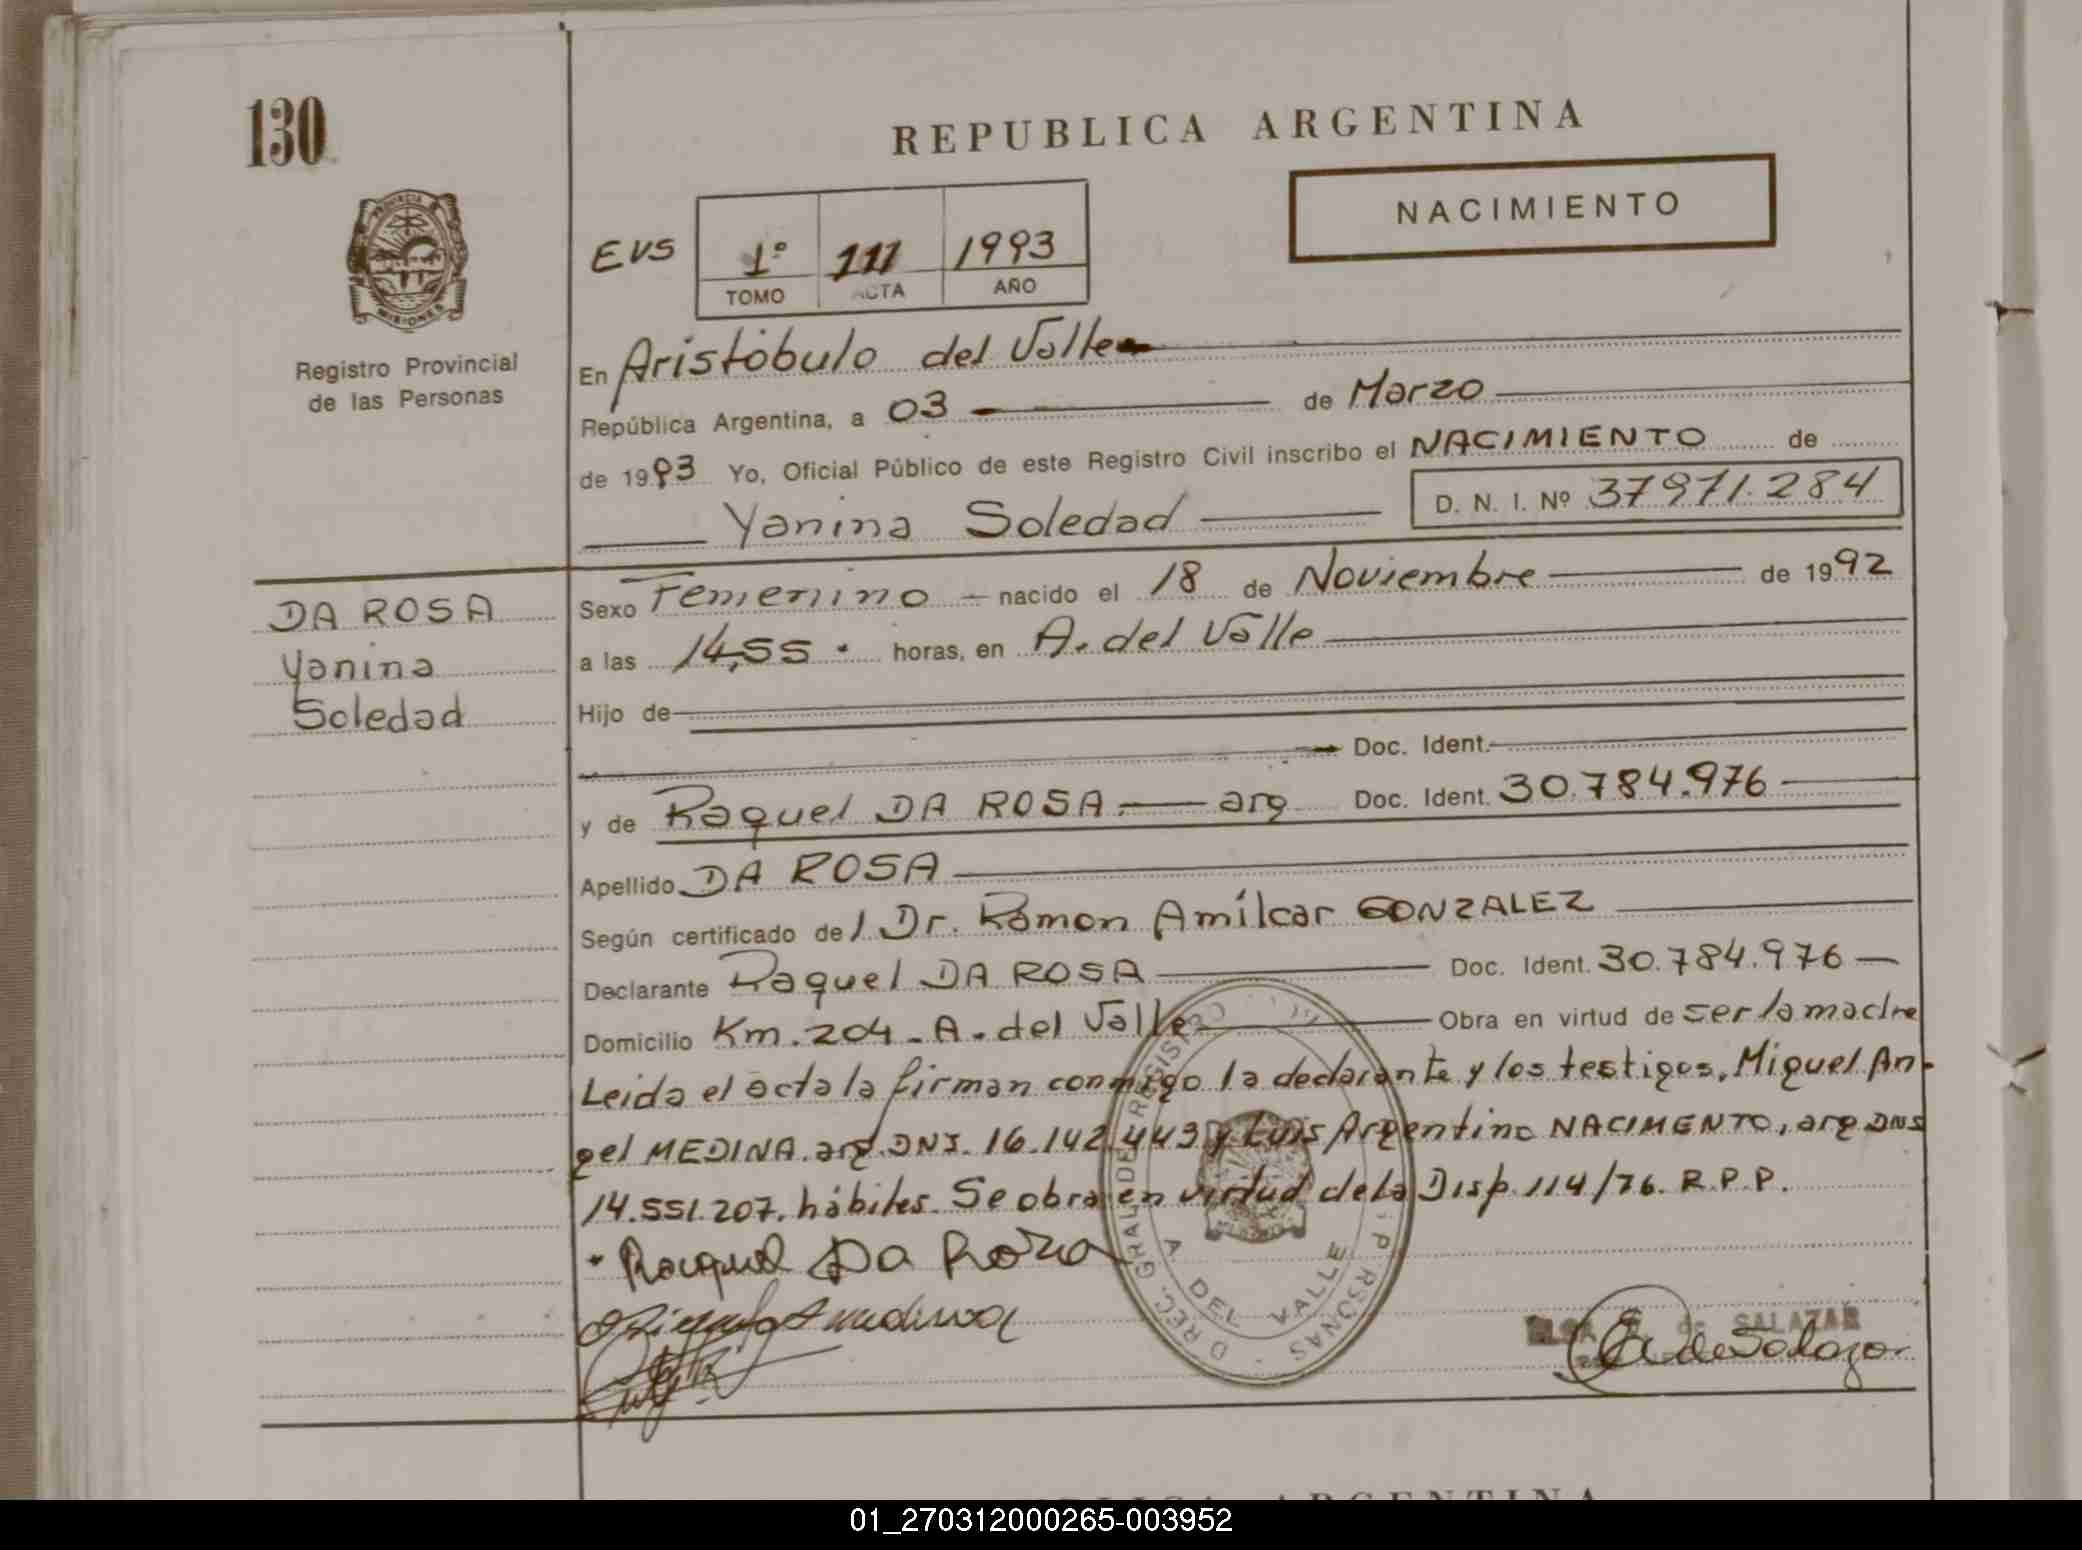 130
REPUBLICA ARGENTINA
NACIMIENTO
EVS
1º 111 1993
TOMO ACTA AÑO
PROVINCIA
MISIONES
Registro Provincial
de las Personas
En Aristóbulo del Valle
República Argentina, a 03 de Marzo
de 1993 Yo, Oficial Público de este Registro Civil inscribo el NACIMIENTO de
Yanina Soledad D. N. I. Nº 37971.284
DA ROSA
Yanina
Soledad
Sexo Femenino nacido el 18 de Noviembre de 1992
a las 14,55 horas, en A. del Valle
Hijo de
Doc. Ident.
y de Raquel DA ROSA. arg Doc. Ident. 30.784.976
Apellido DA ROSA
Según certificado del Dr. Ramon Amílcar GONZALEZ
Declarante Raquel DA ROSA Doc. Ident. 30.784.976
Domicilio Km. 204 - A. del Valle Obra en virtud de ser la madre
Leida el acta la firman conmigo la declarante y los testigos, Miguel An-
gel MEDINA. arg. DNI. 16.142.443 y Luis Argentino NACIMENTO, arg DNI
14.551.207. hábiles. Se obra en virtud de la Disp. 114/76. R.P.P.
Raquel Da Roza
A DEL VALLE
de SALAZAR
E de Salazar
ARGENTINA
01_270312000265-003952